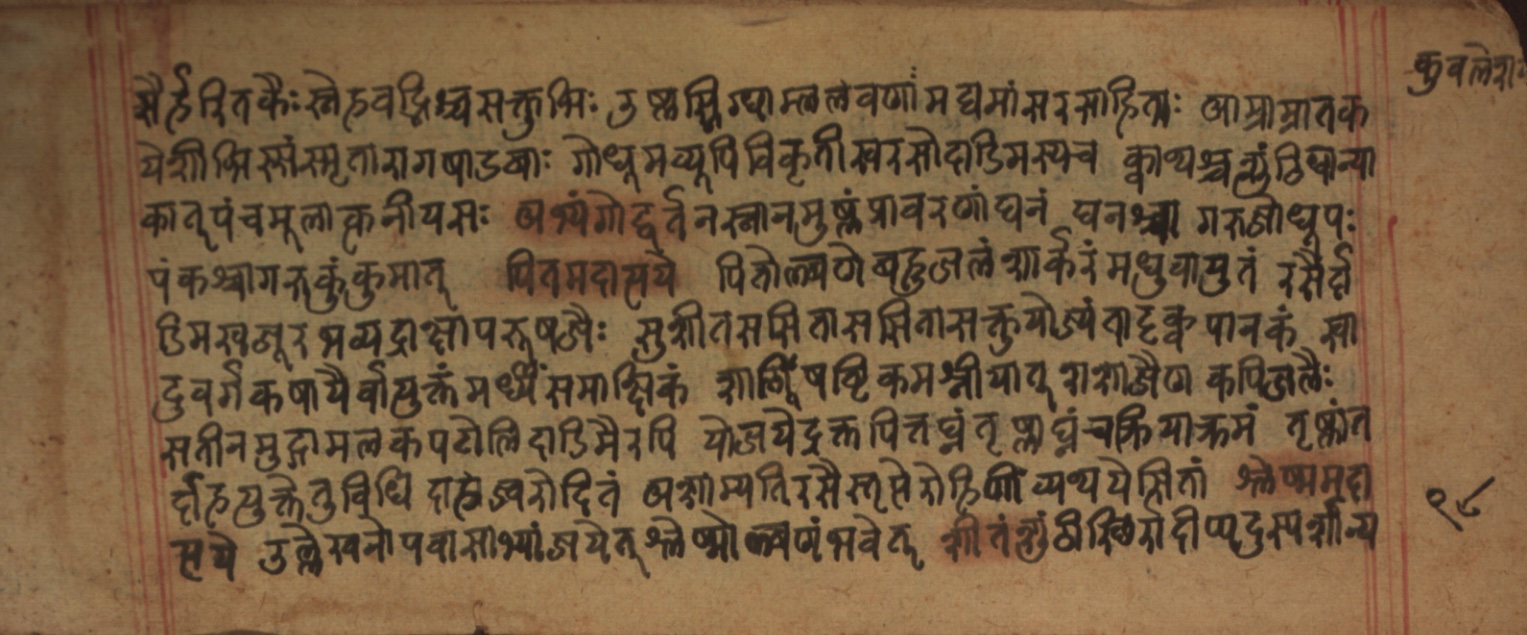 कुवलेशा
सैर्हरितकैः स्नेहवद्भिश्च सक्तुभिः उष्णस्निग्धाम्ललवणा मद्यमांसरसा हिताः आम्राम्रातक
पेशीभिस्संस्मृता रागषाडवाः गोधूमव्यूपिविकृती स्वरसो दाडिमस्य च क्वाथश्च शुंठिधान्या
कात् पंचमूलात्कनीयसः अभ्यंगोद्वर्तनस्नानमुष्णं प्रावरणं घनं घनश्चागरुजो धूपः
पंकश्चागरुकुंकुमात् पित्तमदात्यये पित्तोल्वणे बहुजलं शार्करं मधुवायुतं रसैर्दा
डिमखर्जूरभव्यद्राक्षापरूषजैः सुशीतससितासक्तु योज्यं तादृक्व पानकं स्वा
दुवर्गकषायैर्वायुक्तं मद्यं समाक्षिकं शालिषष्टिकमश्नीयात् शशाजैणकपिंजलैः
सतीनमुद्गामलकपटोलिदाडिमैरपि योजयेद्रक्तपित्तघ्नं तृष्णाघ्नं चक्रियाक्रमं तृष्णांत
र्दाहयुक्ते तु विधि दाहज्वरोदितं अशाम्यति रसैस्तृप्ते रोहिणीं व्यधयेत्सितां श्लेष्ममदा
त्यये उल्लेखनोपवासाभ्यां जयेत् श्लेष्मोल्वणं भवेत् शीतं शुंठी
१८